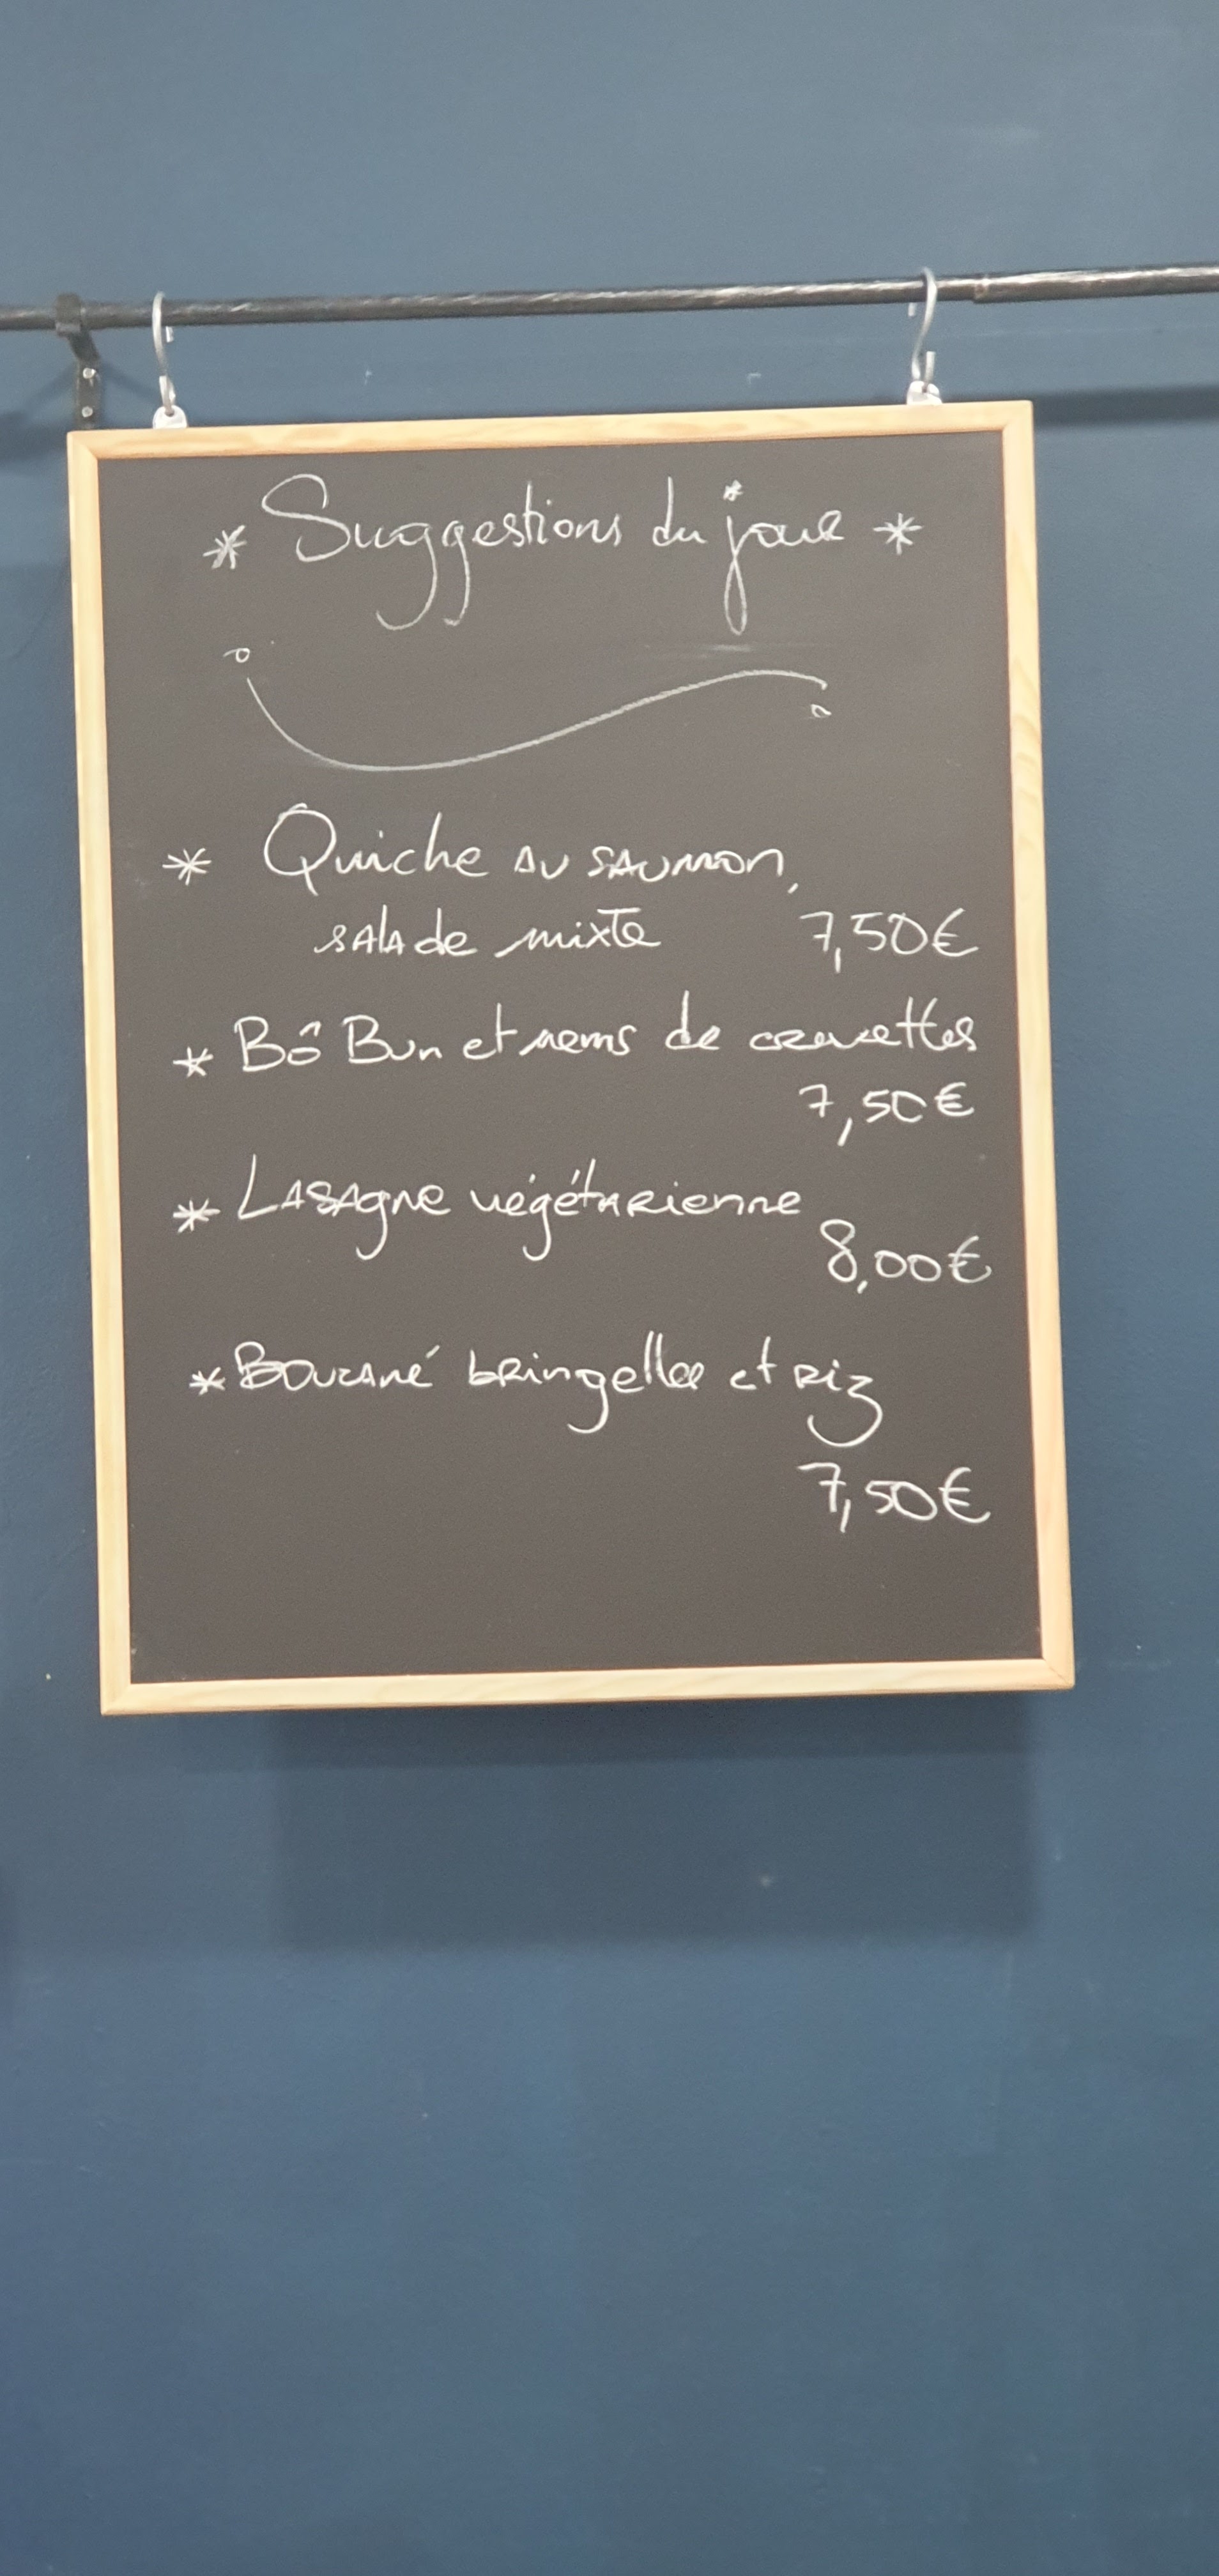 * Suggestions du jour *
* Quiche au saumon,
salade mixte 7,50€
* Bô Bun et nems de crevettes
7,50€
* Lasagne végétarienne
8,00€
* Boucané bringelles et riz
7,50€